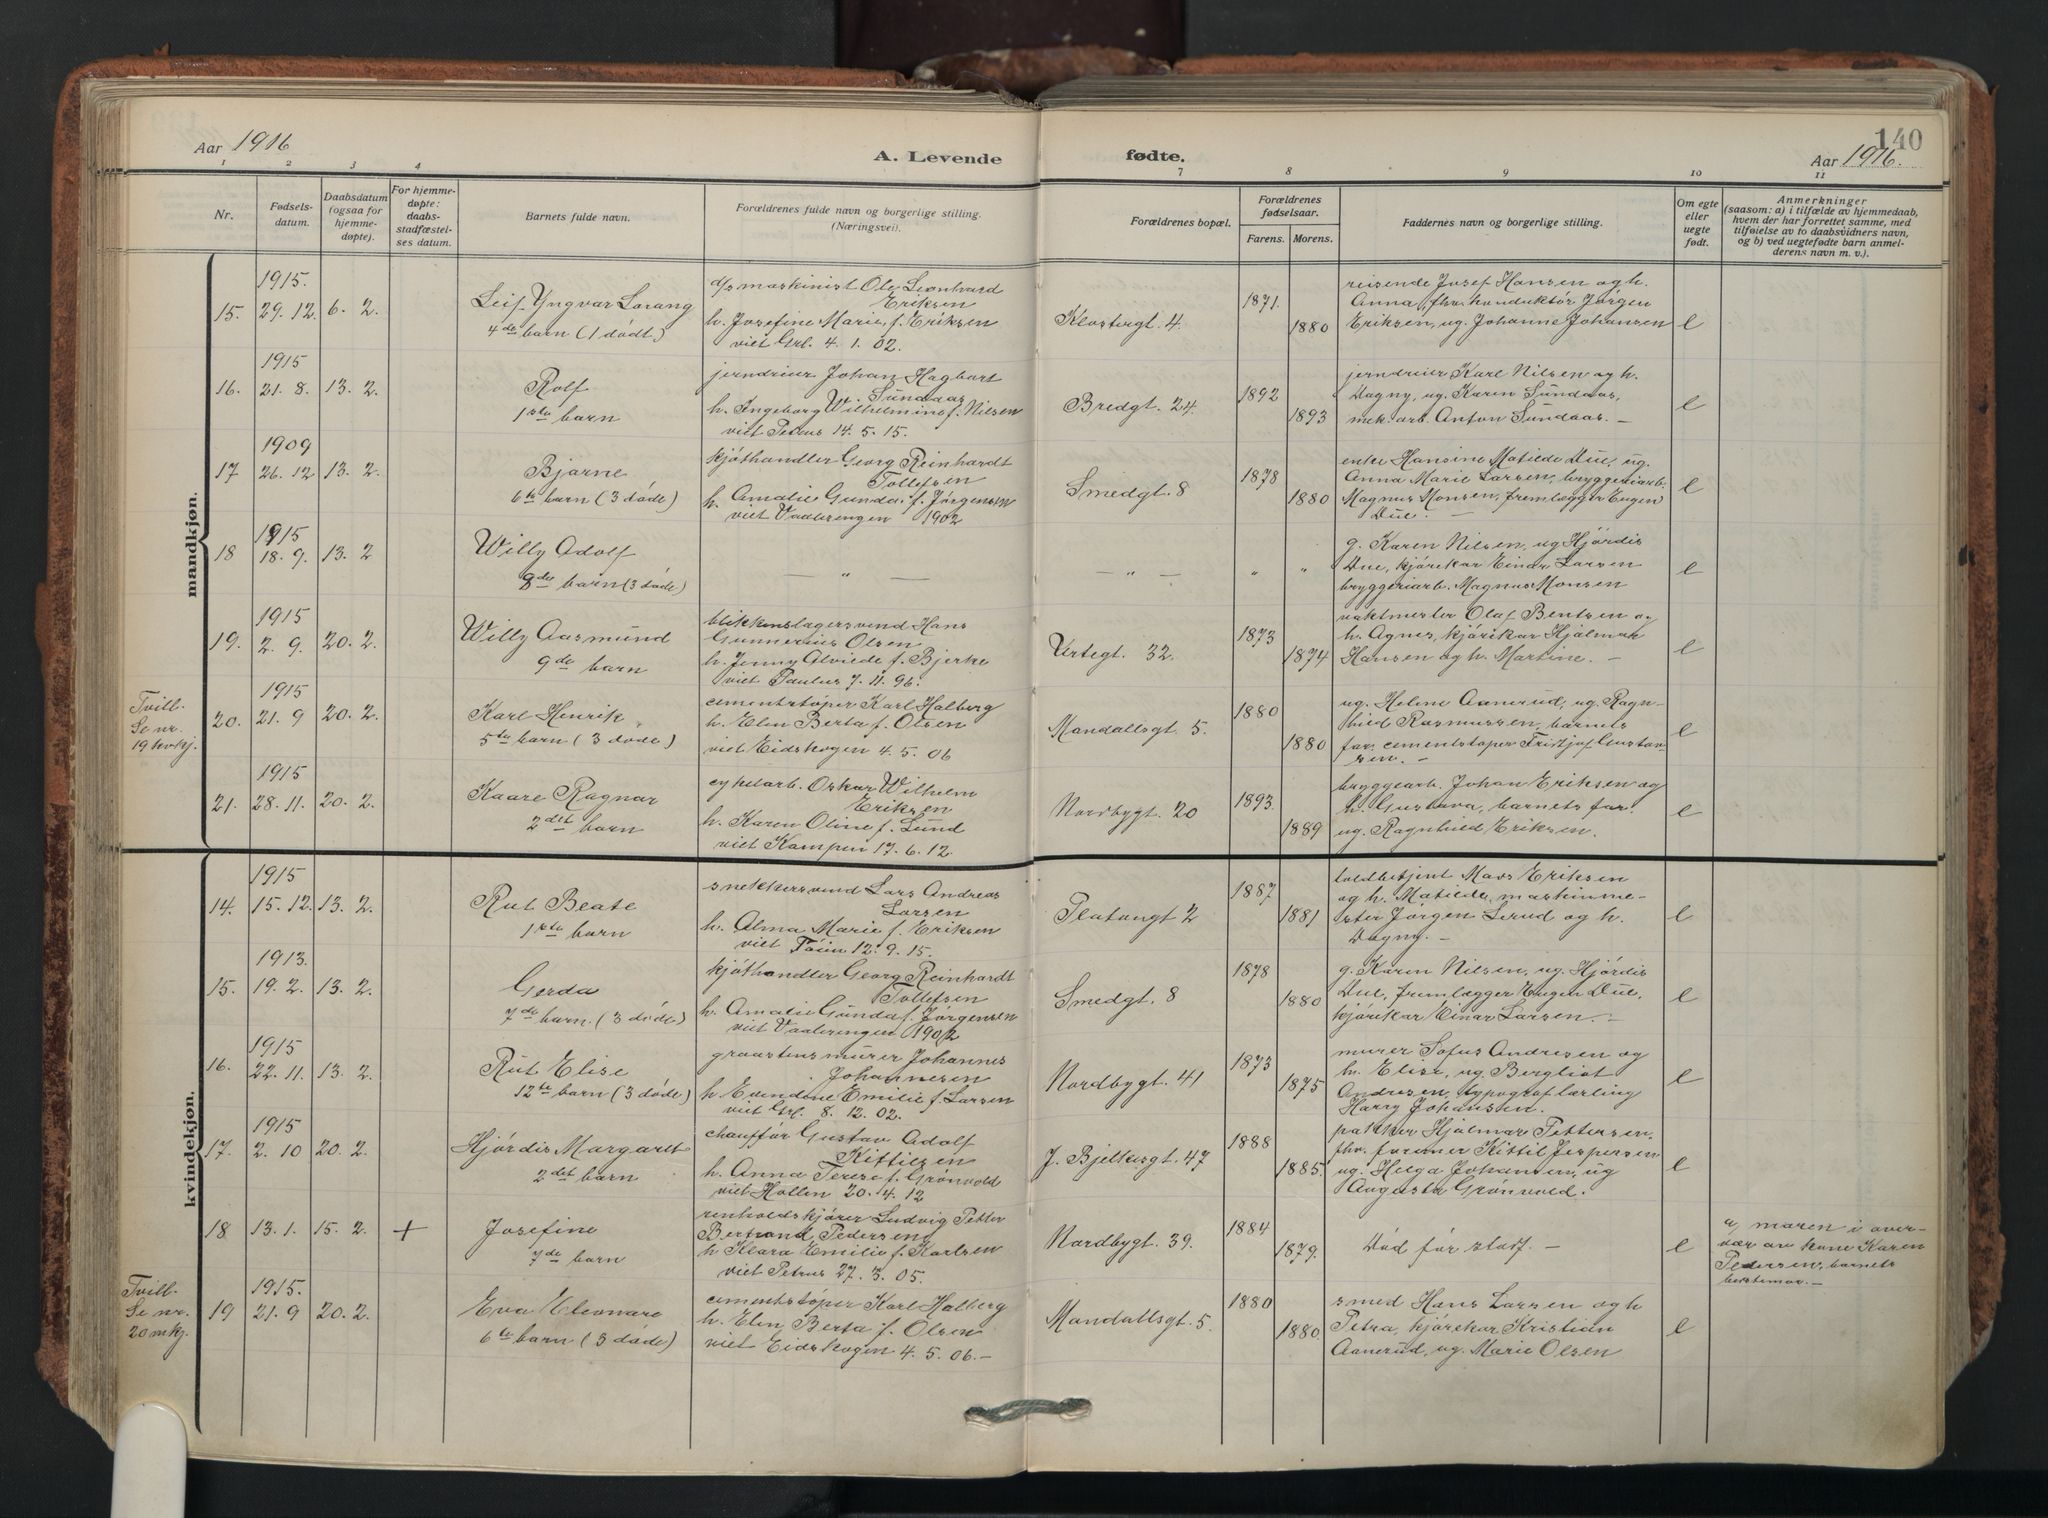 Aar 1916
A. Levende
fødte.
140
Aar 1916.
1 2 3 4
7 8 9 10 11
Nr.
Fødsels-
datum.
Daabsdatum
(ogsaa for
hjemme-
døpte).
For hjemme-
døpte:
daabs-
stadfæstel-
ses datum.
Barnets fulde navn.
Forældrenes fulde navn og borgerlige stilling.
(Næringsvei).
Forældrenes bopæl.
Forældrenes
fødselsaar.
Farens. Morens.
Faddernes navn og borgerlige stilling.
Om egte
eller
uegte
født.
Anmerkninger
(saasom: a) i tilfælde av hjemmedaab,
hvem der har forrettet samme, med
tilføielse av to daabsvidners navn,
og b) ved uegtefødte barn anmel-
derens navn m. v.).
mandkjøn.
15. 1915. 29. 12. 6. 2.
Leif Yngvar Lorang
4de barn (1 dødt)
d/s maskinist Ole Leonhard
Eriksen
h. Josefine Marie, f. Eriksen
viet Grl. 4. 1. 02.
Klostergt. 4.
1871.
1880
reisende Josef Hansen og h.
Anna, fhv. konduktør Jørgen
Eriksen, ug. Johanne Johansen
e
16. 1915 21. 8. 13. 2.
Rolf
1ste barn
jerndreier Johan Hagbart
Sundaas
h. Ingeborg Wilhelmine f. Nilsen
viet Petrus 14. 5. 15.
Bredgt. 24.
1892
1893
jerndreier Karl Nilsen og h.
Dagny, ug. Karen Sundaas,
mek. arb. Anton Sundaas. —
e
17 1909 26. 12 13. 2.
Bjarne
6te barn (3 døde)
kjøthandler Georg Reinhardt
Tollefsen
h. Amalie Gunda f. Jørgensen
viet Vaalerengen 1902
Smedgt. 8
1878
1880
enke Hansine Matilde Due, ug.
Anna Marie Larsen, bryggeriarb.
Magnus Monsen, fremlægger Eugen
Due. —
e
18 1915 18. 9. 13. 2
Willy Adolf
8de barn (3 døde)
— " —
— " —
" "
g. Karen Nilsen, ug Hjørdis
Due, kjørekar Einar Larsen
bryggeriarb. Magnus Monsen
e
19. 1915 2. 9. 20. 2.
Willy Aasmund
9de barn
blikkenslagersvend Hans
Gunnerius Olsen
h. Jenny Alviede f. Bjerke
viet Paulus 7. 11. 96.
Urtegt. 32.
1873
1874
vaktmester Olaf Bentsen og
h. Agnes, kjørekar Hjalmar
Hansen og h. Martine. —
e
Tvill.
Se nr.
19 kvkj.
20. 1915 21. 9 20. 2.
Karl Henrik
5te barn (3 døde)
cementstøper Karl Halberg
h. Elen Berta f. Olsen
viet Eidskogen 4. 5. 06
Mandallsgt. 5.
1880
1880
ug. Helene Aanerud, ug. Ragn-
hild Rasmussen, barnets
far, cementstøper Fritjof Gustav-
sen. —
e
21. 1915 28. 11. 20. 2.
Kaare Ragnar
2det barn
cykelarb. Oskar Wilhelm
Eriksen
h. Karen Oline f. Lund
viet Kampen 17. 6. 12.
Nordbygt. 20
1893.
1889
bryggearb. Johan Eriksen og
h. Gustava, barnets far.
ug. Ragnhild Eriksen.
e
kvindekjøn.
14. 1915 15. 12. 13. 2.
Rut Beate
1ste barn
snekkersvend Lars Andreas
Larsen
h. Alma Marie f. Eriksen
viet Tøien 12. 9. 15.
Platougt 2
1887
1881
toldbetjent Mavs Eriksen
og h. Matilde, maskinme-
ster Jørgen Lerud og h.
Dagny. —
e
15. 1913. 19. 2. 13. 2.
Gerda
7de barn. (3 døde)
kjøthandler Georg Reinhardt
Tollefsen
h. Amalie Gunda f. Jørgensen
viet Vaalerengen 1902
Smedgt. 8
1878
1880
g. Karen Nilsen, ug. Hjørdis
Due, fremlægger Eugen Due,
kjørekar Einar Larsen. —
e
16. 1915 22. 11. 13. 2.
Rut Elise
12te barn (3 døde)
graastensmurer Johannes
Johannesen
h Edendine Emilie f. Larsen
viet Grl. 8. 12. 02.
Nordbygt. 41
1873
1875
murer Sofus Andresen og
h. Elise, ug. Bergliot
Andresen, typograflærling
Harry Johansen.
e
17. 1915 2. 10 20. 2.
Hjørdis Margaret
2det barn
chauffør Gustav Adolf
Kittilsen
h. Anna Terese f. Grønvold
viet Hollen 20. 4. 12
J. Bjelkesgt. 47
1888
1885.
pakker Hjalmar Pettersen,
fhv. former Kittil Jespersen
ug. Helga Johansen, ug
Augusta Grønvold.
e
18 13. 1. 15. 2. +
Josefine
7de barn
renholdskjører Ludvig Petter
Bertrand Pedersen
h Klara Emilie f. Karlsen
viet Petrus 27. 3. 05.
Nordbygt. 39.
1884
1879.
Død før stadf. —
e
a, moren i over-
vær av kone Karen
Pedersen, barnets
bestemor. —
Tvill.
Se nr.
20 mkj.
19 1915. 21. 9 20. 2.
Eva Eleonore
6te barn (3 døde)
cementstøper Karl Halberg
h. Elen Berta f. Olsen
viet Eidskogen 4. 5. 06. —
Mandallsgt. 5.
1880
1880.
smed Hans Larsen og h
Petra, kjørekar Kristian
Aanerud, ug. Marie Olsen
e